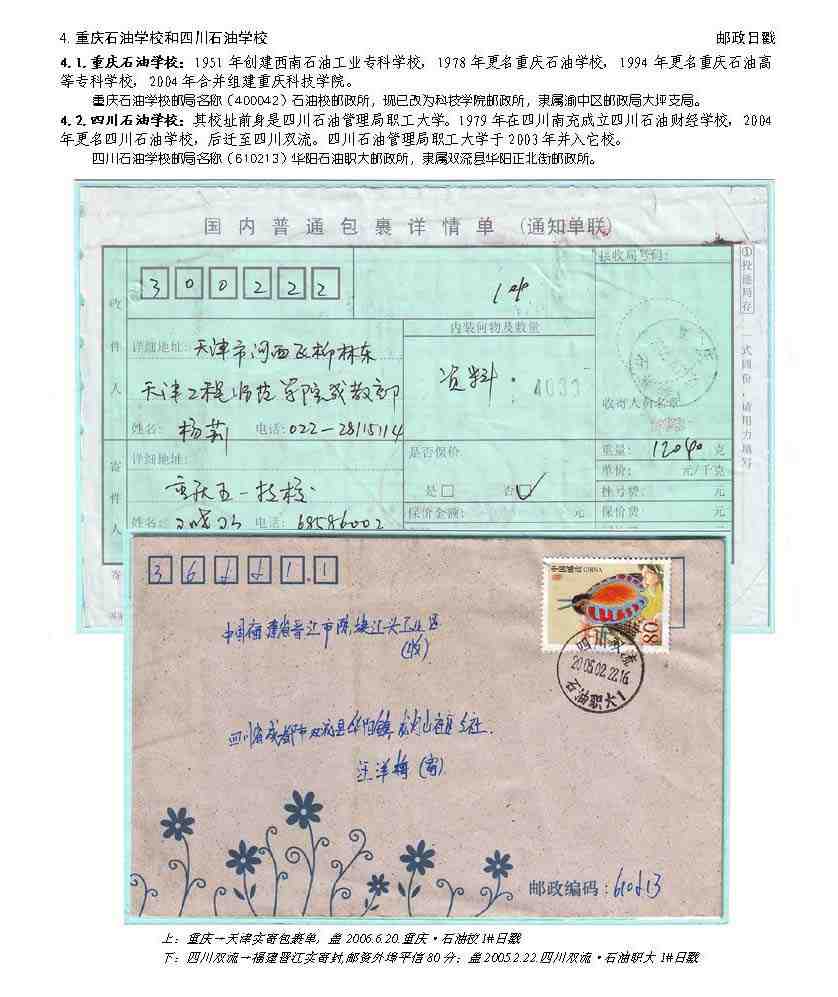 4. 重庆石油学校和四川石油学校
邮政日戳
4.1.重庆石油学校：1951 年创建西南石油工业专科学校，1978 年更名重庆石油学校，1994 年更名重庆石油高
等专科学校，2004 年合并组建重庆科技学院。
重庆石油学校邮局名称（400042）石油校邮政所，现已改为科技学院邮政所，隶属渝中区邮政局大坪支局。
4.2.四川石油学校：其校址前身是四川石油管理局职工大学。1979 年在四川南充成立四川石油财经学校，2004
年更名四川石油学校，后迁至四川双流。四川石油管理局职工大学于 2003 年并入它校。
四川石油学校邮局名称（610213）华阳石油职大邮政所，隶属双流县华阳正北街邮政所。
国内普通包裹详情单 (通知单联)
接收局号码：
①投递局存
一式四份，请用力填写
收件人
300222
内装何物及数量
详细地址：天津市河西区柳林东
资料： 4033
天津工程师范学院成教部
收寄人员名章
姓名：杨莉 电话：022-28115114
寄件人
详细地址：
是否保价
重量： 克
重庆五一技校
是□ 否□
单价： 元/千克
挂号费： 元
姓名： 电话：68586002
保价金额： 元
保价费： 元
36 1.1
中国邮政 CHINA
80
中国福建省晋江市陈埭江头工业区
(收)
四川双流
2005.02.22.16
石油职大1
四川省成都市双流县华阳镇
汪洋梅 (寄)
邮政编码：610213
上：重庆→天津实寄包裹单，盖 2006.6.20.重庆·石油校 1#日戳
下：四川双流→福建晋江实寄封,邮资外埠平信 80 分；盖 2005.2.22.四川双流·石油职大 1#日戳